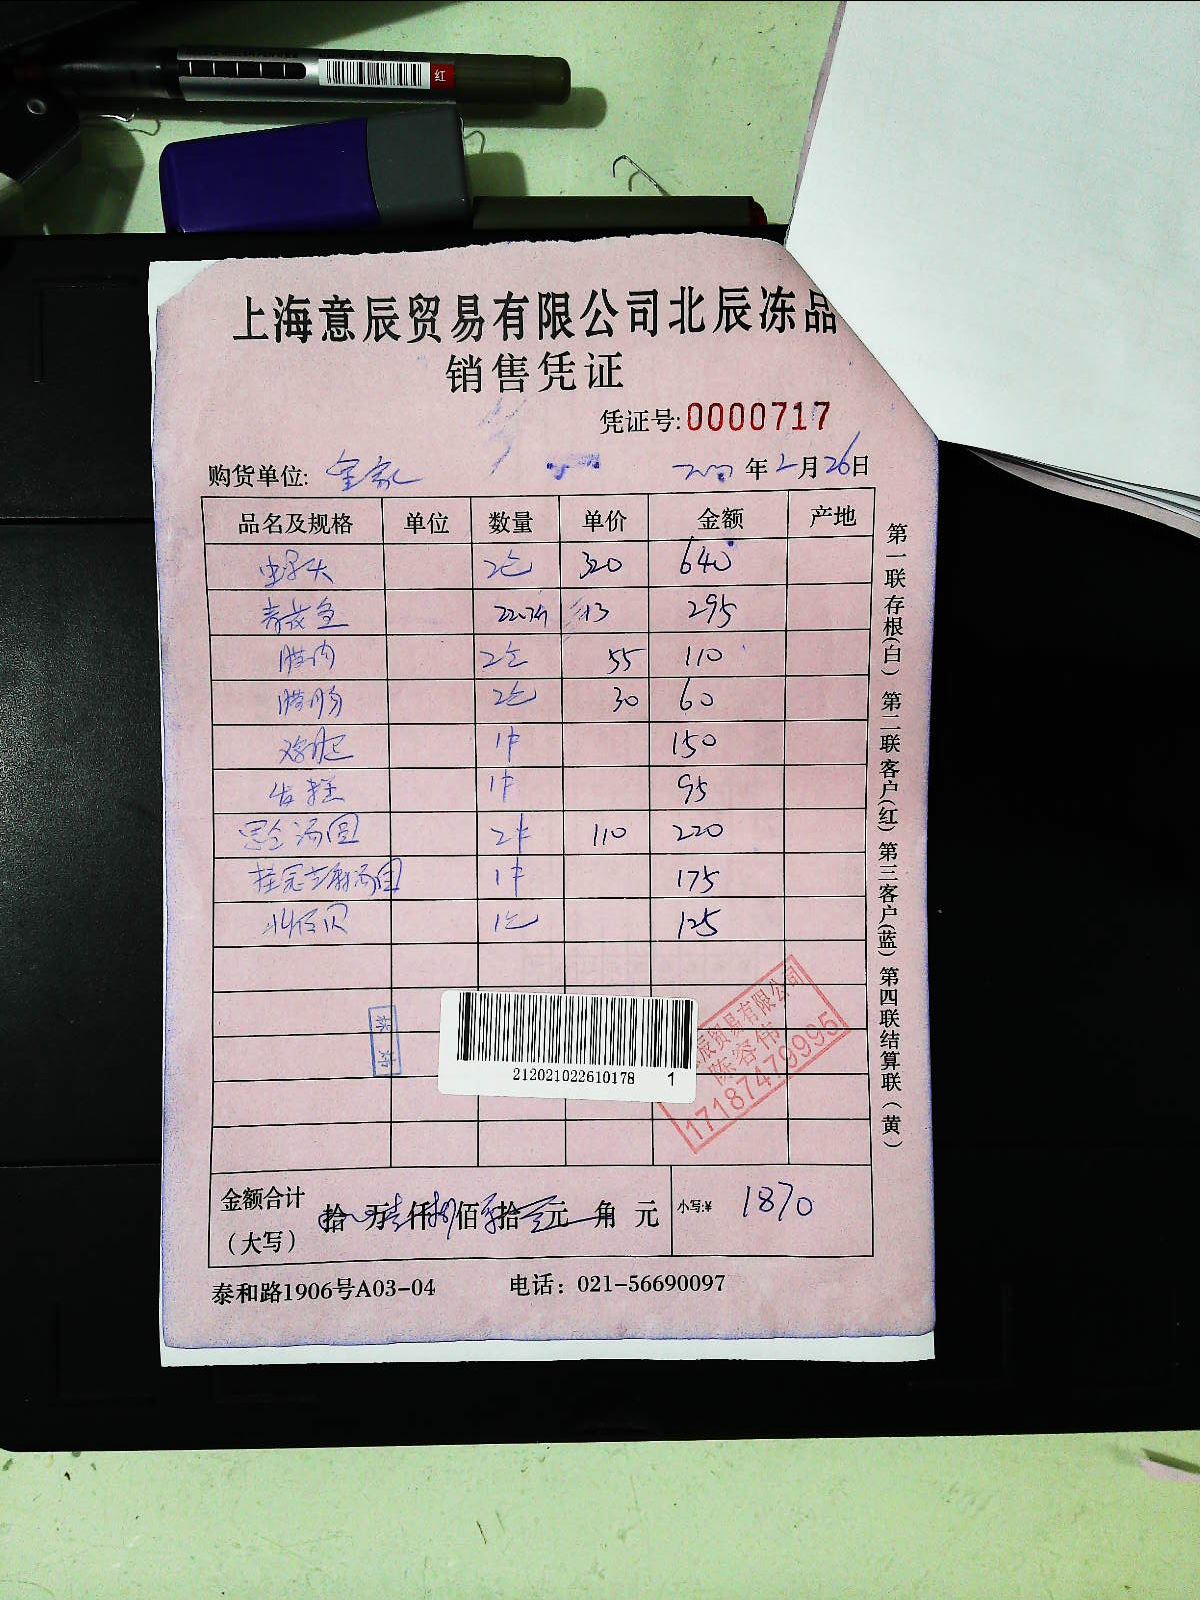 红
上海意辰贸易有限公司北辰冻品
销售凭证
凭证号:0000717
购货单位: 全家 年2月26日
品名及规格 单位 数量 单价 金额 产地
虫子头 2包 320 640
青衣鱼 13 295
腊肉 2包 55 110
腊肠 2包 30 60
1件 150
1件 95
汤圆 2件 110 220
桂冠芝麻汤圆 1件 175
北极贝 1包 125
辰贸易有限公司
陈容伟
17187479995
212021022610178 1
金额合计
(大写)
拾 万 仟 佰 拾 元 角 元
小写:¥ 1870
泰和路1906号A03-04 电话: 021-56690097
第一联 存根(白) 第二联 客户(红) 第三客户(蓝) 第四联结算联(黄)